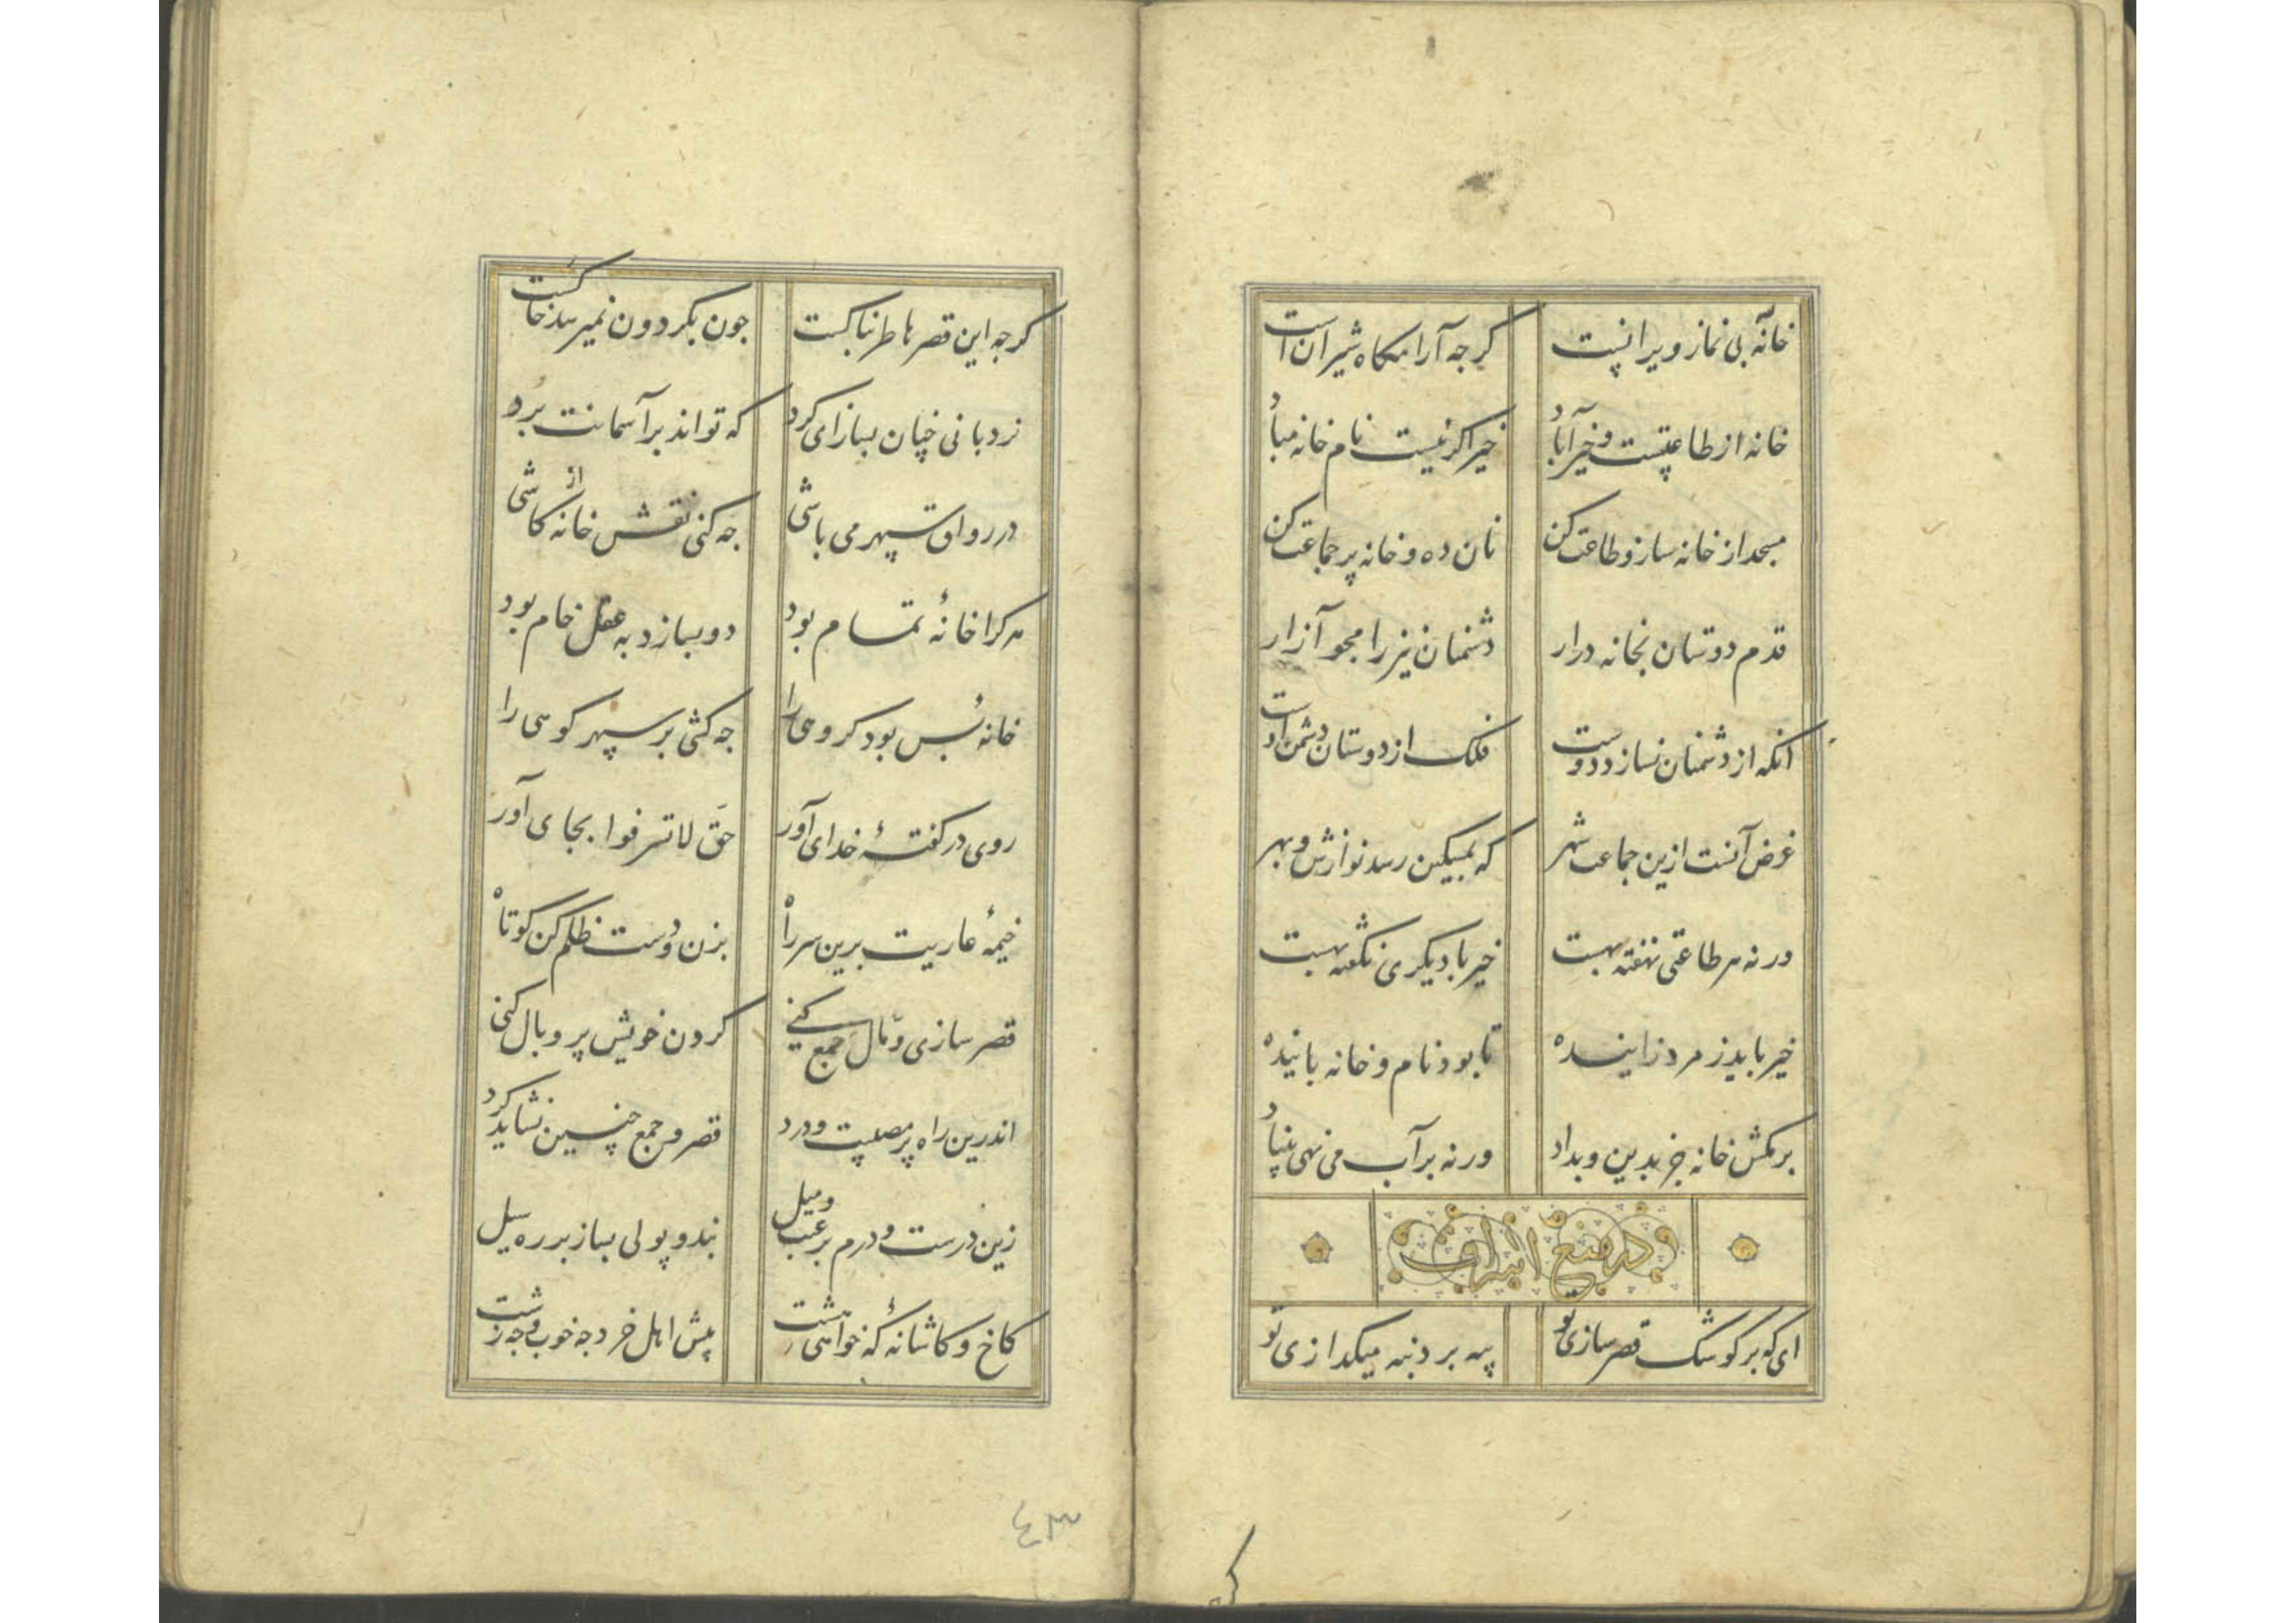 خانه بی نماز ویرانیست کرجه آرامکاه شیرانست
خانه از طاعتست و خیر آباد خیر اکر نیست نام خانه مباد
مسجد از خانه ساز و طاعت کن نان ده و خانه پر جماعت کن
قدم دوستان بخانه درار دشمنان نیز را مجو آزار
انکه از دشمنان نسازد دوست فلک از دوستان دشمن اوست
غرض آنست ازین جماعت شهر که بمسکین رسد نوازش و بهر
ورنه هر طاعتی نهفته بهست خیر با دیکری نکفته بهست
خیر باید ز مرد زاینده تا بود نام و خانه پاینده
برمکش خانه جز بدین و بداد ورنه بر آب می نهی بنیاد
در منع اسراف
ای که بر کوشک قصر سازی تو پیه بر دنبه میکدازی تو
کرجه این قصرها طربناکست جون بکردون نمیرسد خاکست
نردبانی جنان بساز ای کرد که تواند بر آسمانت برد
در رواق سپهر می باشی جه کنی نقش خانه از کاشی
هرکرا خانهٔ تمام بود دو بسازد به عقل خام بود
خانه بس بود کروهی را جه کشی بر سپهر کوهی را
روی در کفتهٔ خدای آور حق لاتسرفوا بجای آور
خیمهٔ عاریت برین سر راه بزن و دست ظلم کن کوتاه
قصر سازی و مال جمع کنی کردن خویش پر وبال کنی
اندرین راه پر مصیبت و درد قصر و جمع چنین نشاید کرد
زین درست و درم برغبت و میل بند و پولی بساز بر ره سیل
کاخ و کاشانهٔ که خواهی هشت پیش اهل خرد جه خوب و جه زشت
٤٣
کر